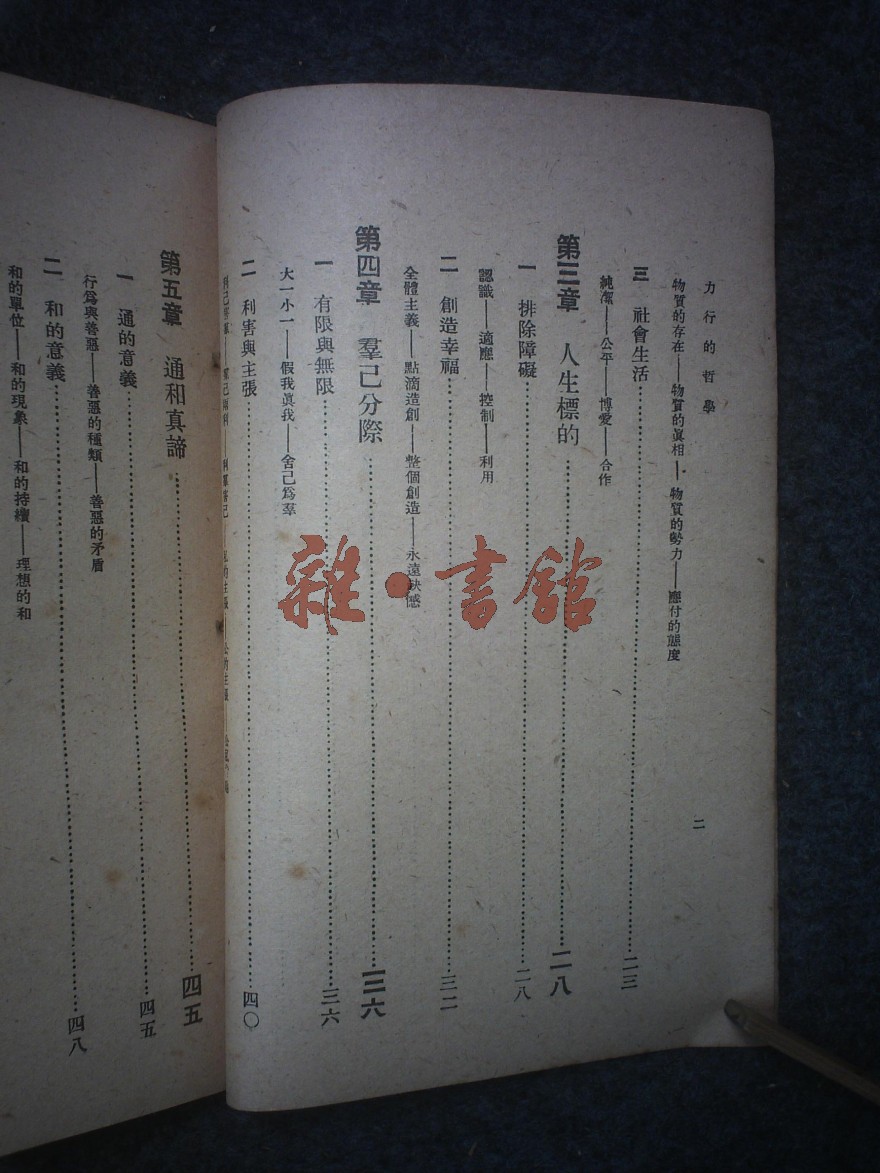 力行的哲學
物質的存在——物質的眞相——物質的勢力——應付的態度
三 社會生活……二三
純潔——公平——博愛——合作
第三章 人生標的……二八
一 排除障礙……二八
認識——適應——控制——利用
二 創造幸福……三二
全體主義——點滴造創——整個創造——永遠缺憾
第四章 羣己分際……三六
一 有限與無限……三六
大一小一——假我眞我——舍己爲羣
二 利害與主張……四〇
二
第五章 通和真諦……四五
一 通的意義……四五
行爲與善惡——善惡的種類——善惡的矛盾
二 和的意義……四八
和的單位——和的現象——和的持續——理想的和
雜·書館